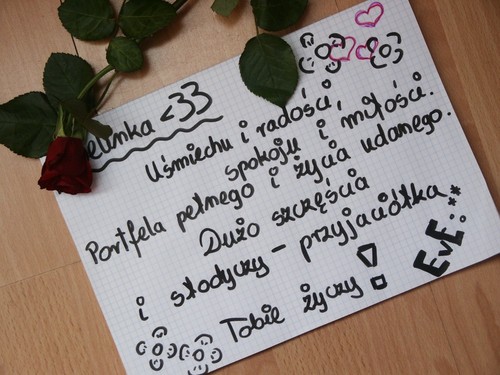 elinka <33
Uśmiechu i radości,
spokoju i miłości.
Portfela pełnego i życia udanego.
Dużo szczęścia
i słodyczy - przyjaciółka
Tobie życzy!
EvE:**